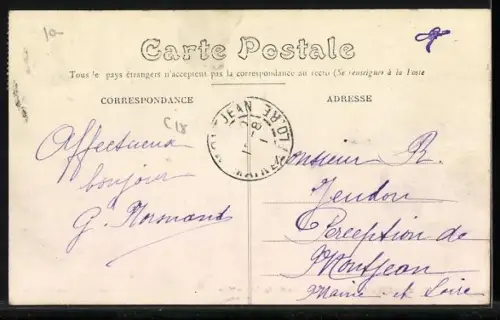 10
Carte Postale
Tous les pays étrangers n'acceptent pas la correspondance au recto (Se renseigner à la Poste
CORRESPONDANCE
ADRESSE
C18
JEAN
Affectueux
bonjour
G. Normand
Monsieur R.
Perception de
Montjean
Maine et Loire